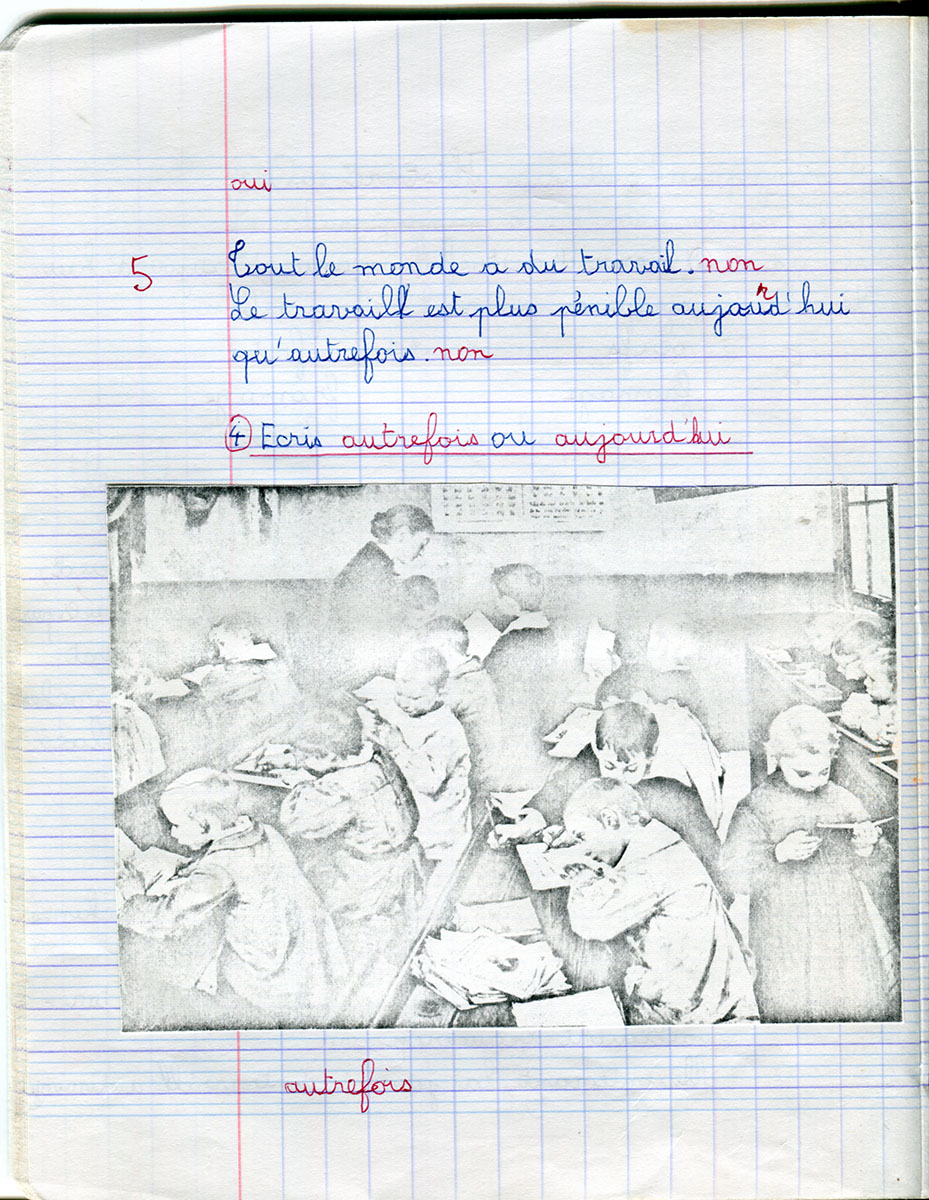 oui
5 Tout le monde a du travail. non
Le travaill est plus pénible aujourd'hui
qu'autrefois. non
④ Ecris autrefois ou aujourd'hui
autrefois